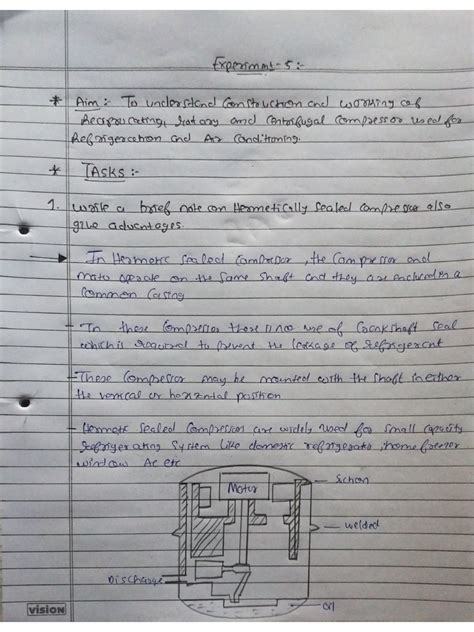 Experiment-5:-
* Aim:- To understand Construction and working of
Reciprocating, Rotary and Centrifugal Compressor used for
Refrigeration and Air Conditioning.
* TASKS:-
1. write a brief note on Hermetically Sealed Compressor also
give advantages.
→ In Hermetic sealed Compressor, the Compressor and
motor operate on the same shaft and they are enclosed in a
Common Casing
- In these Compressor there is no use of Crankshaft seal
which is required to prevent the leakage of Refrigerant
- These Compressor may be mounted with the shaft in either
the vertical or horizontal position
- Hermetic Sealed Compressor are widely used for small capacity
refrigerating system like domestic refrigerator, home freezer
window Ac etc
Motor
Suction
welded
Discharge
Oil
vision